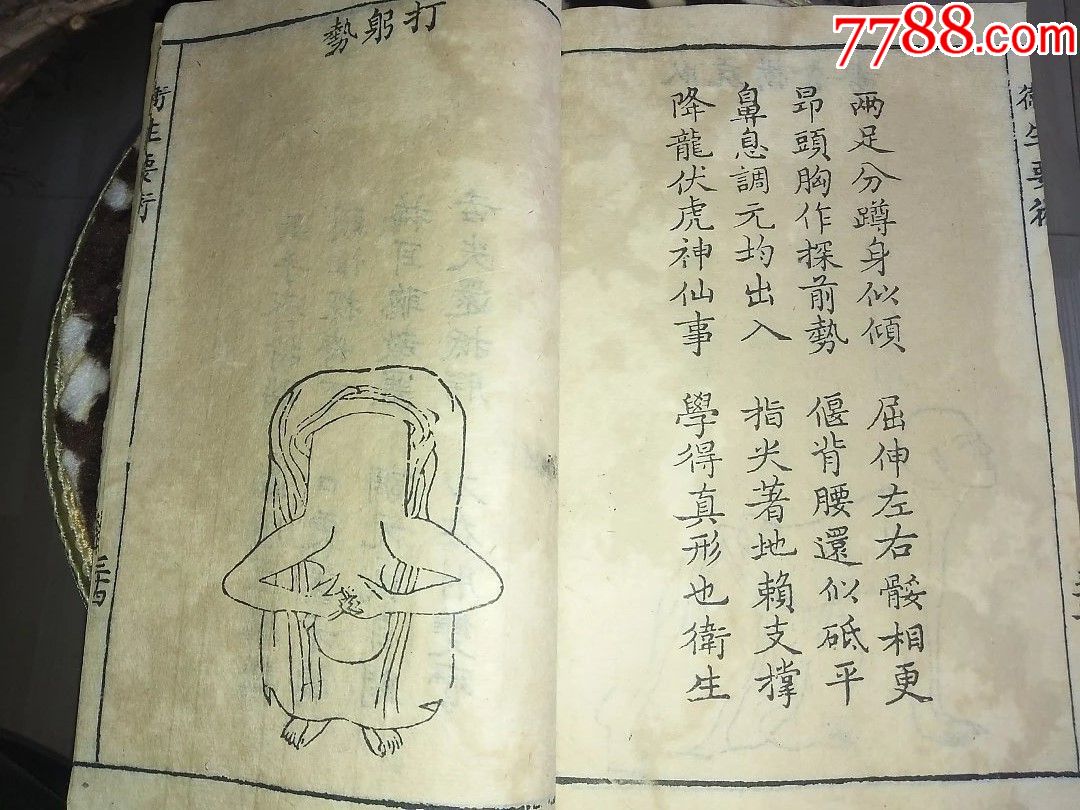 7788.com
衛生要術
兩足分蹲身似傾 屈伸左右骽相更
昻頭胸作探前勢 偃背腰還似砥平
鼻息調元均出入 指尖著地賴支撐
降龍伏虎神仙事 學得真形也衛生
打躬勢
衛生要術
三十四